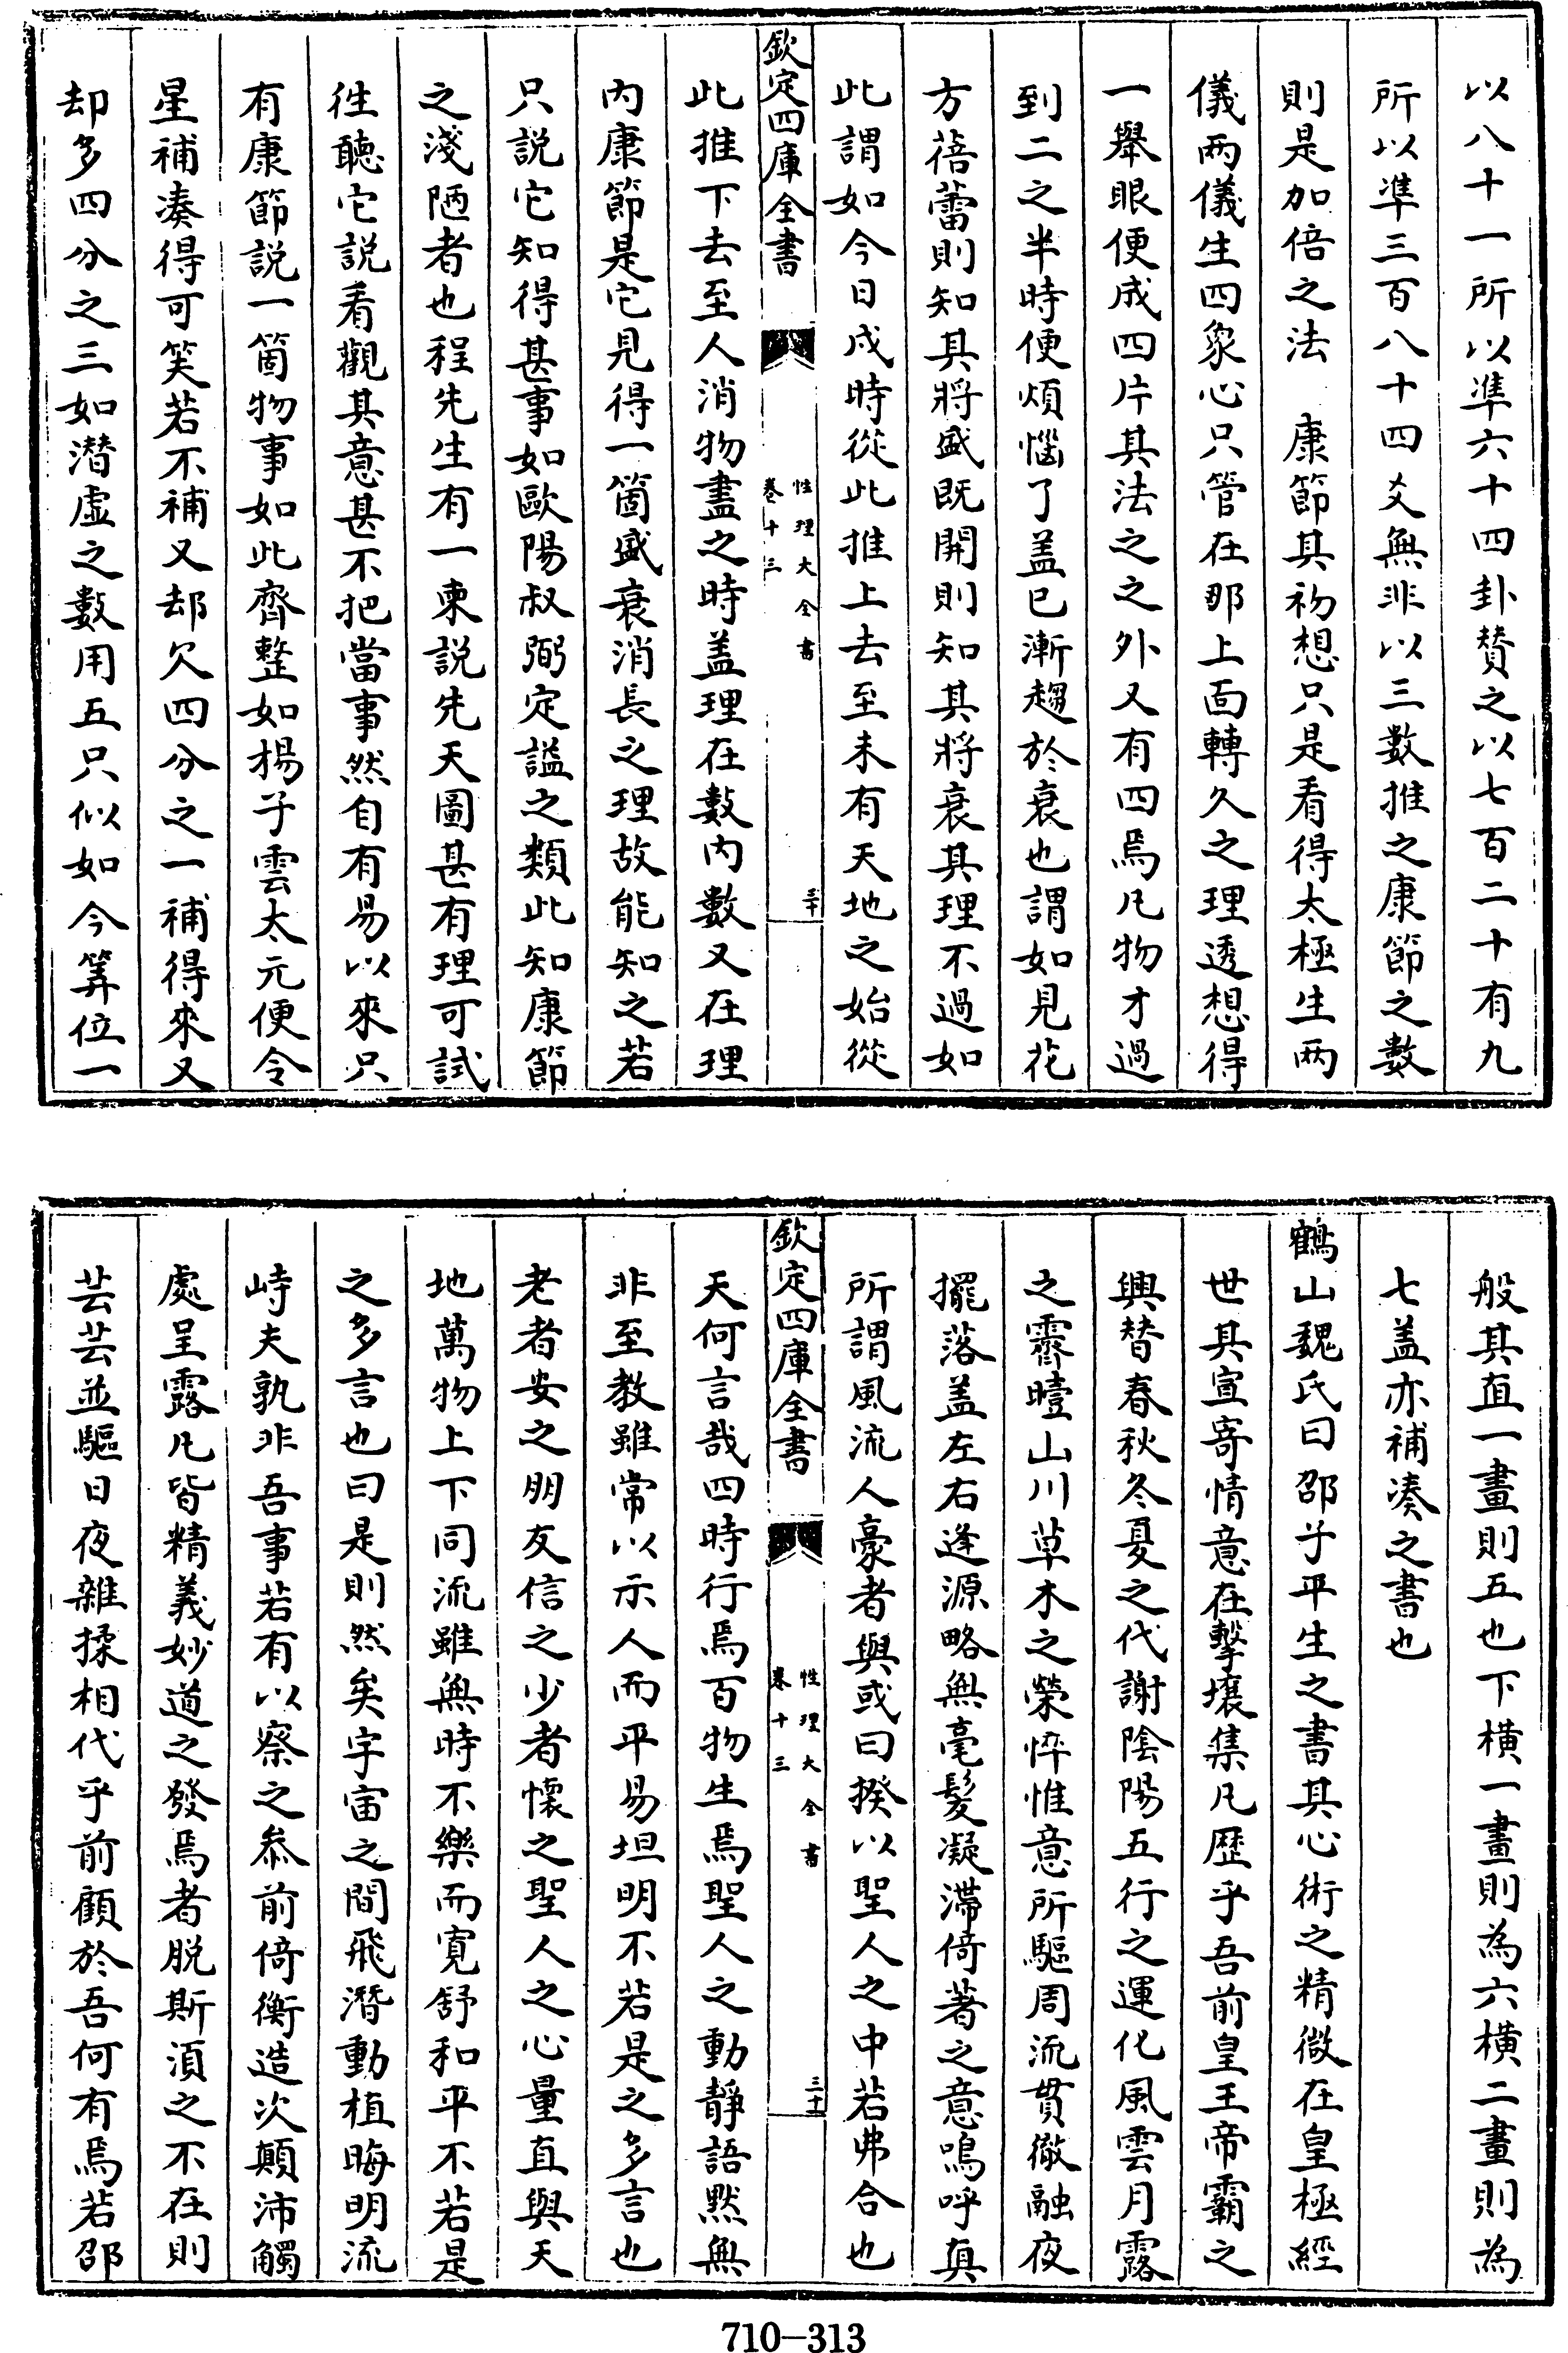 以八十一所以準六十四卦贊之以七百二十有九
所以準三百八十四爻無非以三數推之康節之數
則是加倍之法　康節其初想只是看得太極生兩
儀兩儀生四象心只管在那上面轉久之理透想得
一舉眼便成四片其法之之外又有四焉凡物才過
到二之半時便煩惱了盖已漸趨於衰也謂如見花
方蓓蕾則知其將盛既開則知其將衰其理不過如
此謂如今日戌時從此推上去至未有天地之始從
欽定四庫全書
性理大全書
卷十三
三十
此推下去至人消物盡之時盖理在數內數又在理
內康節是它見得一箇盛衰消長之理故能知之若
只說它知得甚事如歐陽叔弼定諡之類此知康節
之淺陋者也程先生有一柬說先天圖甚有理可試
徃聽它說看觀其意甚不把當事然自有易以來只
有康節說一箇物事如此齊整如揚子雲太元便令
星補湊得可笑若不補又却欠四分之一補得來又
却多四分之三如潛虛之數用五只似如今筭位一
般其直一畫則五也下橫一畫則為六橫二畫則為
七盖亦補湊之書也
鶴山魏氏曰邵子平生之書其心術之精微在皇極經
世其宣寄情意在擊壤集凡歷乎吾前皇王帝霸之
興替春秋冬夏之代謝陰陽五行之運化風雲月露
之霽曀山川草木之榮悴惟意所驅周流貫徹融液
擺落盖左右逢源略無毫髮凝滯倚著之意嗚呼真
所謂風流人豪者與或曰揆以聖人之中若弗合也
欽定四庫全書
性理大全書
卷十三
三十一
天何言哉四時行焉百物生焉聖人之動靜語黙無
非至教雖常以示人而平易坦明不若是之多言也
老者安之朋友信之少者懷之聖人之心量直與天
地萬物上下同流雖無時不樂而寛舒和平不若是
之多言也曰是則然矣宇宙之間飛潛動植晦明流
峙夫孰非吾事若有以察之叅前倚衡造次顛沛觸
處呈露凡皆精義妙道之發焉者脱斯須之不在則
芸芸並驅日夜雜揉相代乎前顧於吾何有焉若邵
710-313